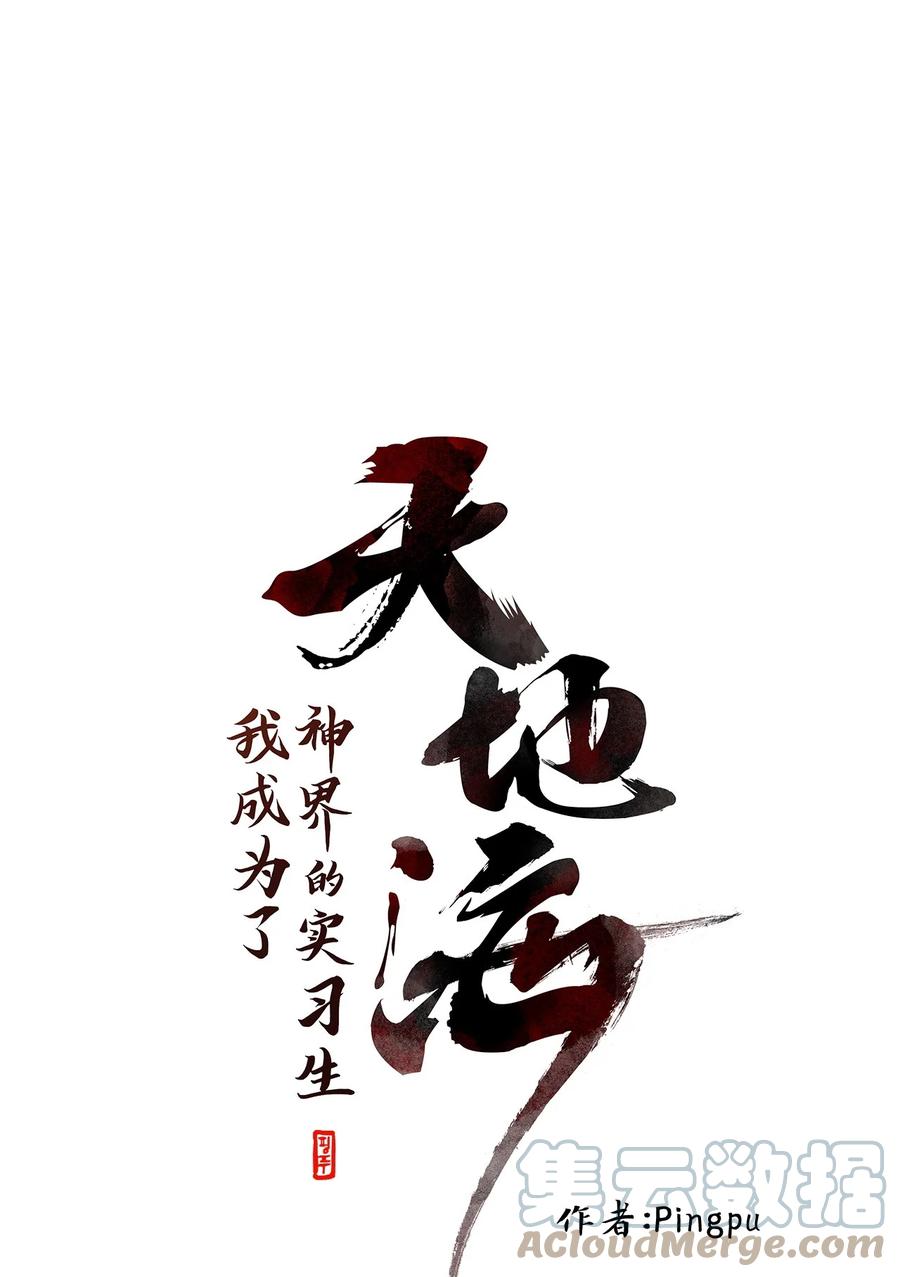 天地海
神界的实习生
我成为了
핑푸
作者:Pingpu
集云数据
ACloudMerge.com